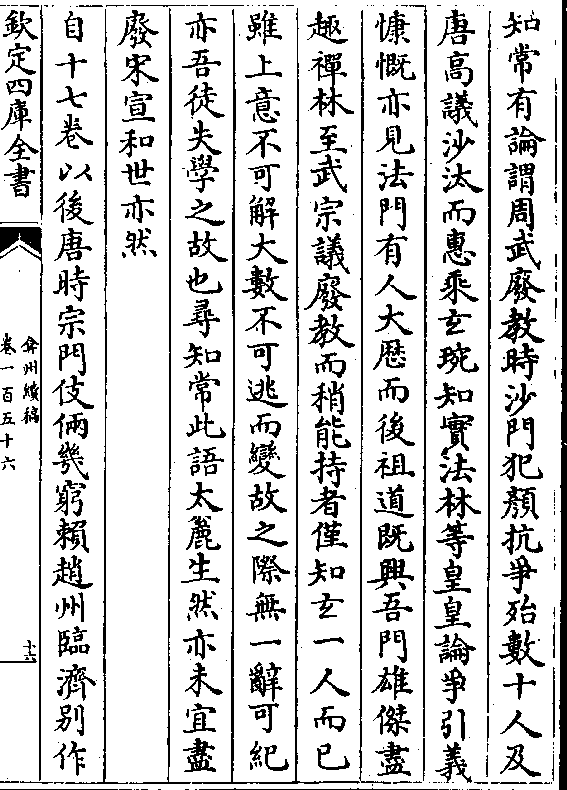 知常有論謂周武廢教時沙門犯顏抗爭殆數十人及
唐高議沙汰而惠乘玄琬知實法林等皇皇論爭引義
慷慨亦見法門有人大厯而後祖道既興吾門雄傑盡
趣禪林至武宗議廢教而稍能持者僅知玄一人而已
雖上意不可解大數不可逃而變故之際無一辭可紀
亦吾徒失學之故也尋知常此語太麄生然亦未宜盡
廢宋宣和世亦然
自十七卷以後唐時宗門伎倆幾窮賴趙州臨濟别作
欽定四庫全書
弇州續稿
卷一百五十六
十六